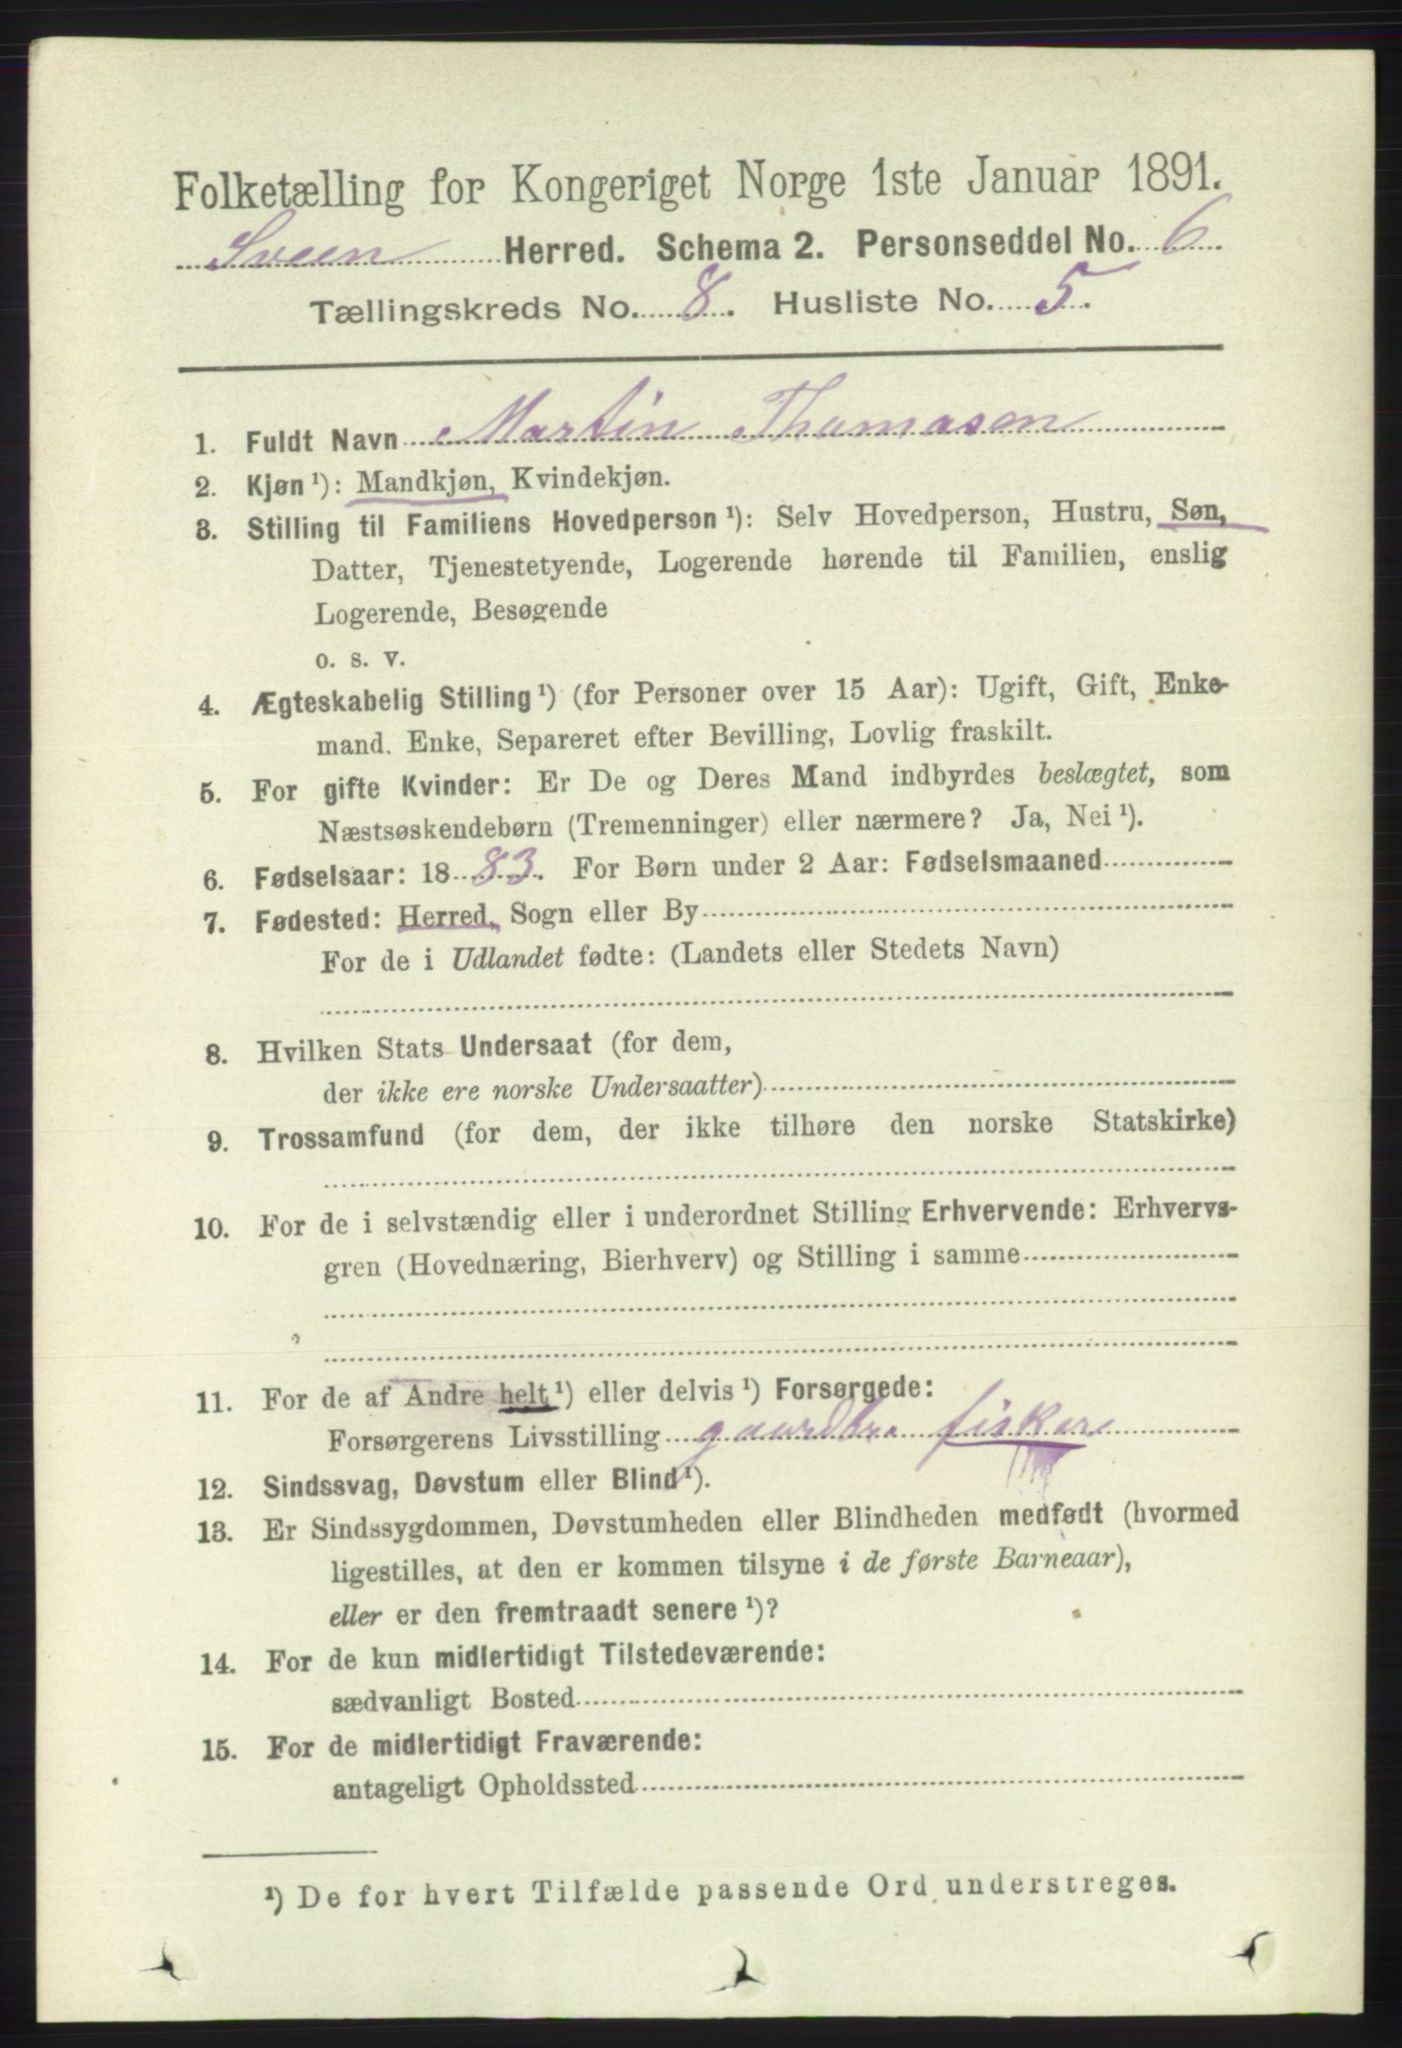 Folketælling for Kongeriget Norge 1ste Januar 1891.
Sveen Herred. Schema 2. Personseddel No. 6.
Tællingskreds No. 8. Husliste No. 5.
1. Fuldt Navn Martin Thomasen
2. Kjøn¹): Mandkjøn, Kvindekjøn.
3. Stilling til Familiens Hovedperson¹): Selv Hovedperson, Hustru, Søn,
Datter, Tjenestetyende, Logerende hørende til Familien, enslig
Logerende, Besøgende
o. s. v.
4. Ægteskabelig Stilling¹) (for Personer over 15 Aar): Ugift, Gift, Enke-
mand. Enke, Separeret efter Bevilling, Lovlig fraskilt.
5. For gifte Kvinder: Er De og Deres Mand indbyrdes beslægtet, som
Næstsøskendebørn (Tremenninger) eller nærmere? Ja, Nei¹).
6. Fødselsaar: 1883. For Børn under 2 Aar: Fødselsmaaned
7. Fødested: Herred, Sogn eller By
For de i Udlandet fødte: (Landets eller Stedets Navn)
8. Hvilken Stats Undersaat (for dem,
der ikke ere norske Undersaatter)
9. Trossamfund (for dem, der ikke tilhøre den norske Statskirke)
10. For de i selvstændig eller i underordnet Stilling Erhvervende: Erhvervs-
gren (Hovednæring, Bierhverv) og Stilling i samme
11. For de af Andre helt¹) eller delvis¹) Forsørgede:
Forsørgerens Livsstilling gaardbr. fisker
12. Sindssvag, Døvstum eller Blind¹).
13. Er Sindssygdommen, Døvstumheden eller Blindheden medfødt (hvormed
ligestilles, at den er kommen tilsyne i de første Barneaar),
eller er den fremtraadt senere¹)?
14. For de kun midlertidigt Tilstedeværende:
sædvanligt Bosted
15. For de midlertidigt Fraværende:
antageligt Opholdssted
¹) De for hvert Tilfælde passende Ord understreges.